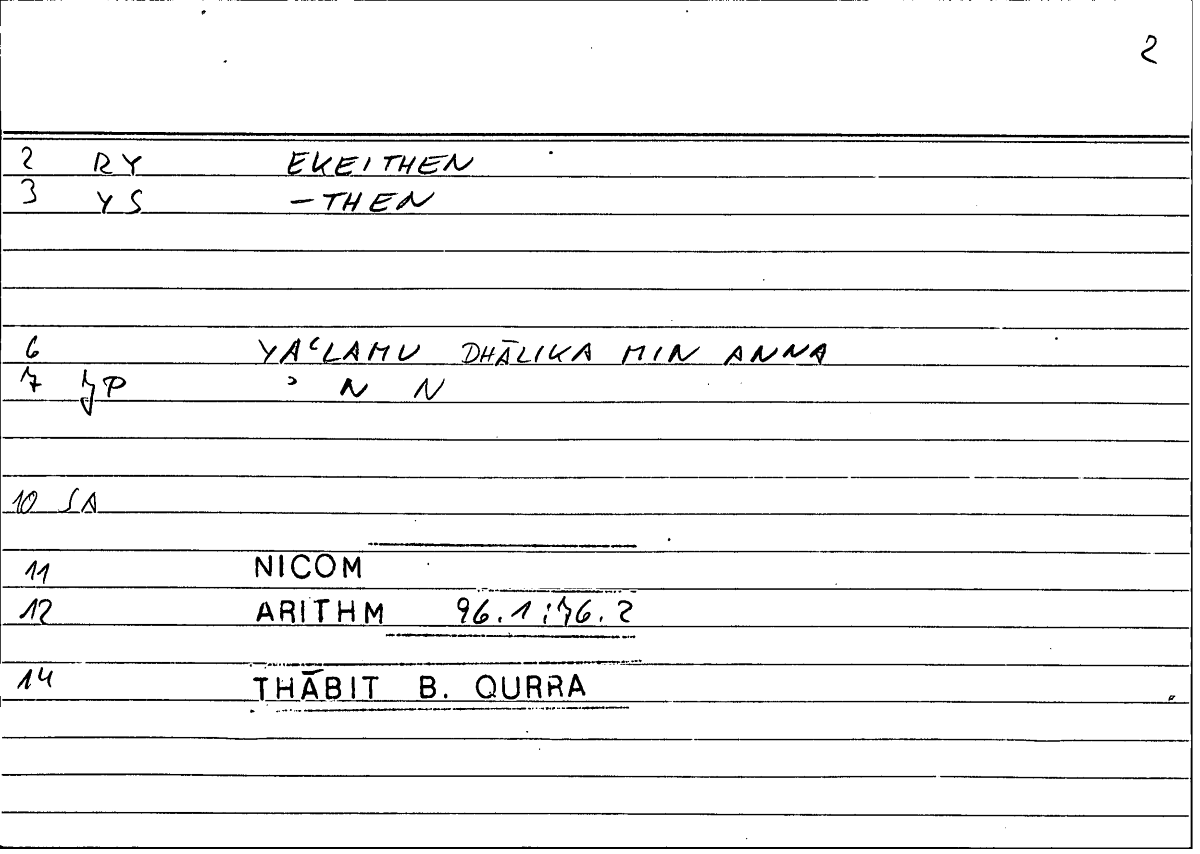 2
2 RY EKEITHEN
3 YS -THEN
6 YAʿLAMU DHĀLIKA MIN ANNA
7 JP ʾ N N
10 SA
11 NICOM
12 ARITHM 96.1;76.2
14 THĀBIT B. QURRA